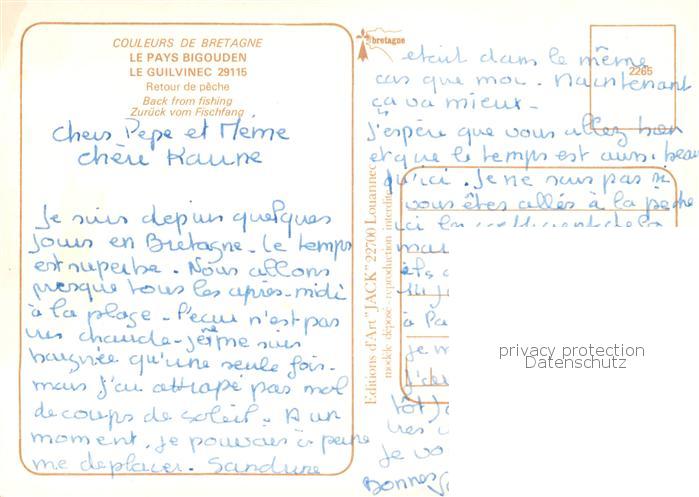 COULEURS DE BRETAGNE
LE PAYS BIGOUDEN
LE GUILVINEC 29115
Retour de pêche
Back from fishing
Zurück vom Fischfang
Chers Pépé et Mémé
chère Karine
Je suis depuis quelques
jours en Bretagne. Le temps
est superbe. Nous allons
presque tous les après-midi
à la plage. l'eau n'est pas
très chaude. je me suis
baignée qu'une seule fois.
mais j'ai attrapé pas mal
de coups de soleil. A un
moment, je pouvais à peine
me déplacer. Sandrine
bretagne
2265
Editions d'Art "JACK" 22700 Louannec
modèle déposé - reproduction interdite
etait dans le même
cas que moi. Maintenant
ça va mieux.
J'espère que vous allez bien
et que le temps est aussi beau
qu'ici. Je ne sais pas si
vous êtes allés à la pêche
ici
à Pa
je m
tôt
je vo
Bonnes
privacy protection
Datenschutz